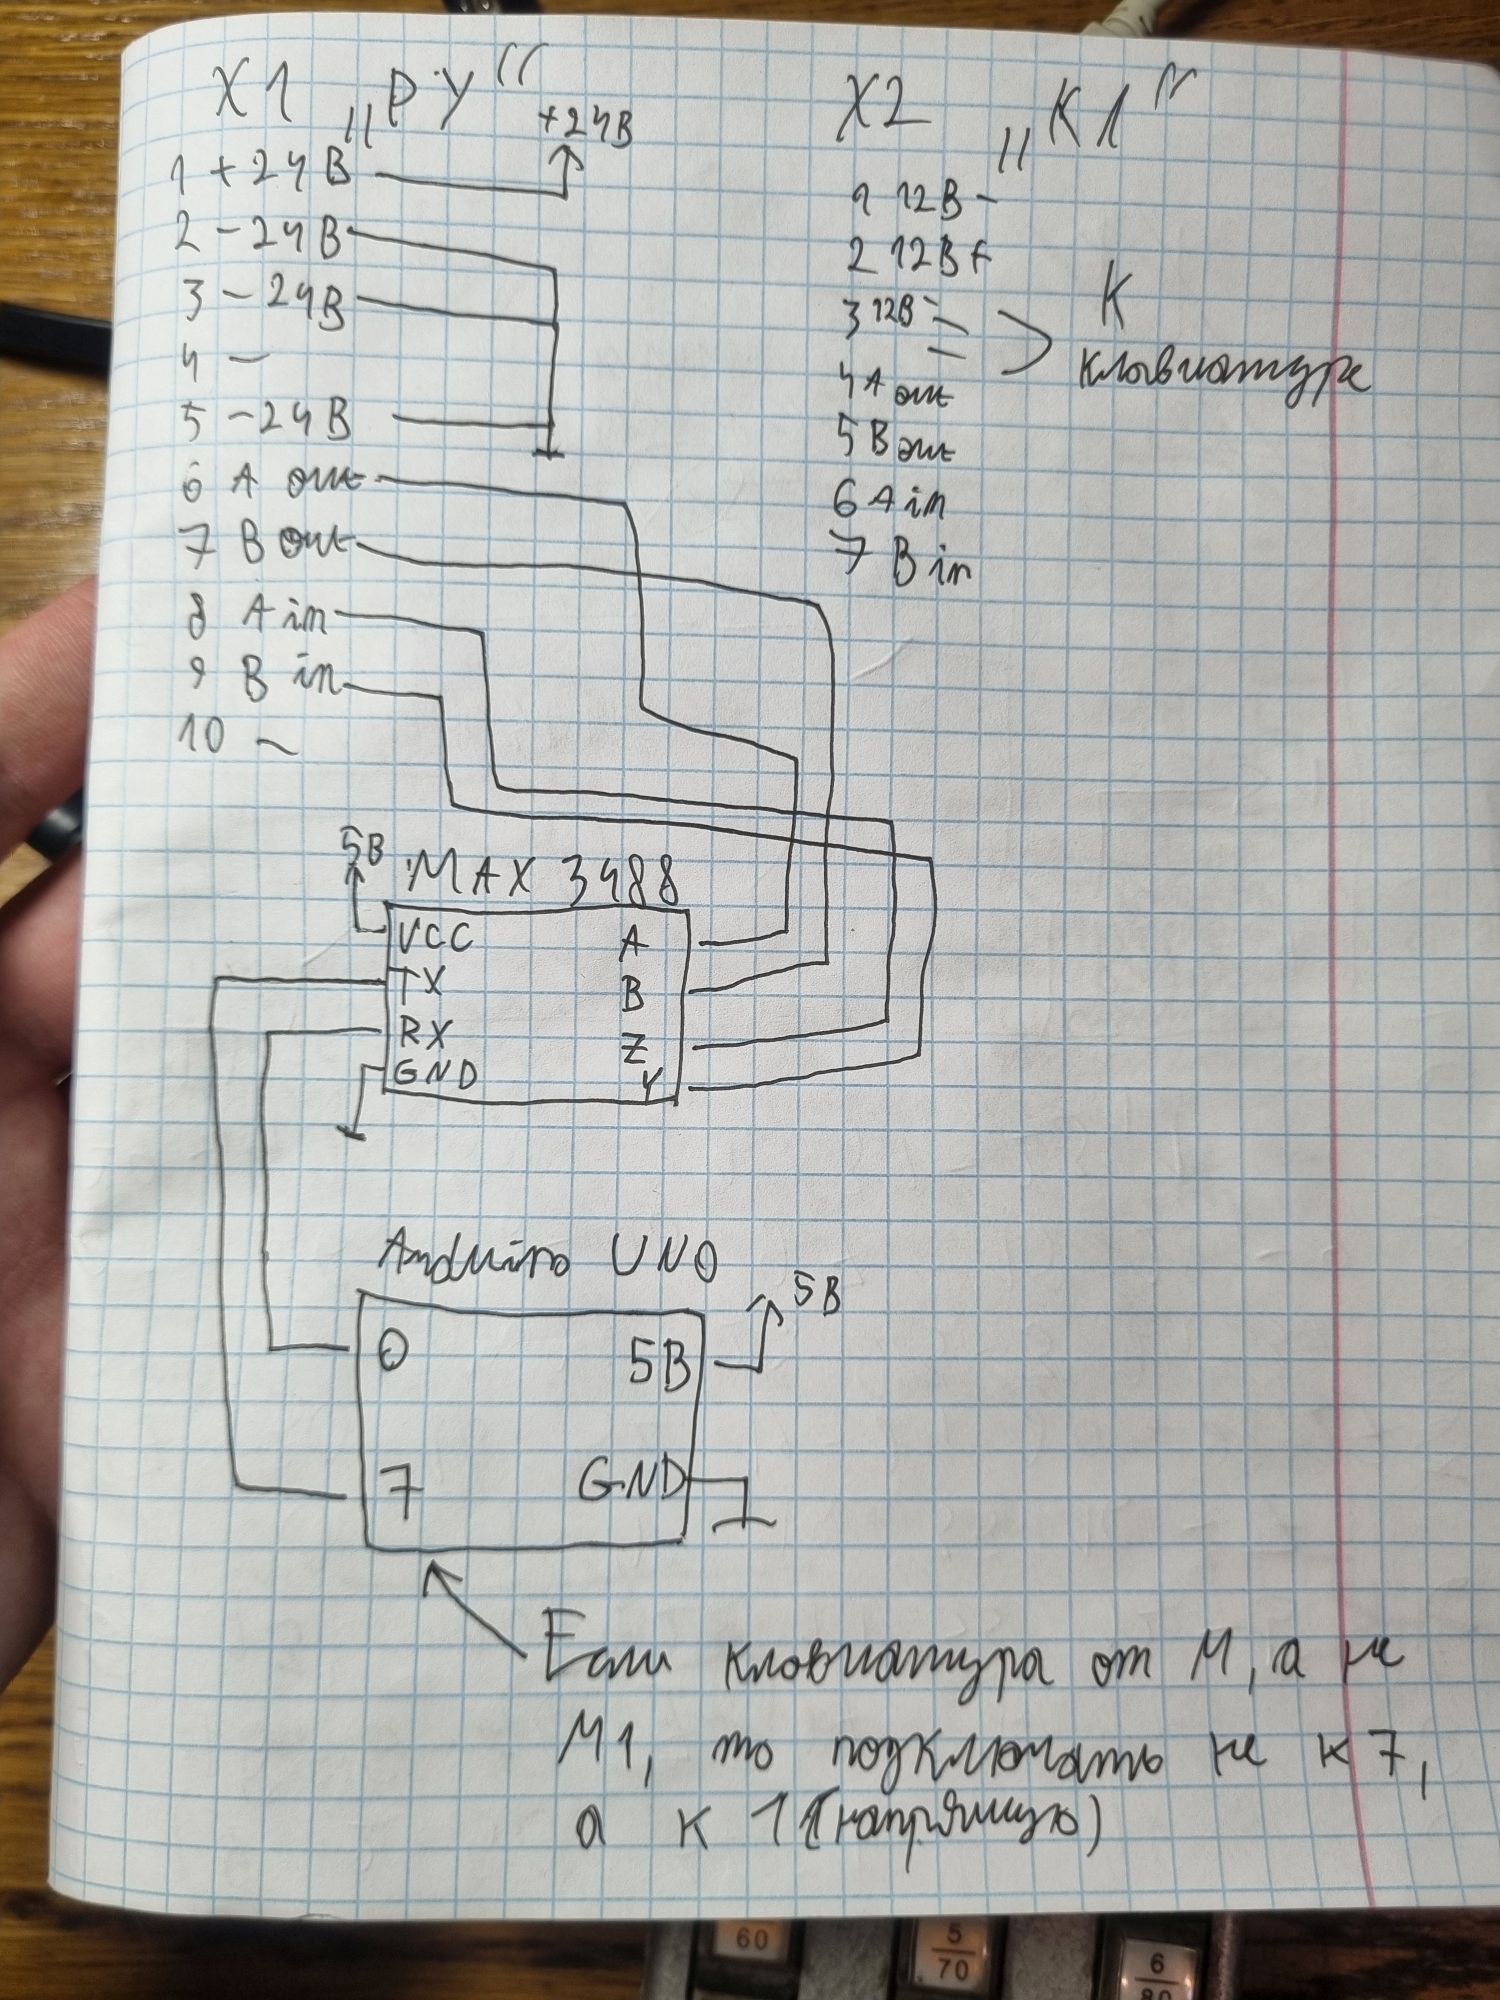 X1 „РУ“
+24В
1 +24В
2 -24В
3 -24В
4 -
5 -24В
6 A out
7 B out
8 A in
9 B in
10 -
X2 „К1“
1 12В-
2 12В+
3 12В-
4 A out
5 B out
6 A in
7 B in
К
клавиатуре
5В
MAX 3488
VCC
TX
RX
GND
A
B
Z
Y
Arduino UNO
0
7
5В
GND
5В
Если клавиатура от М, а не
М1, то подключать не к 7,
а к 1 (напрямую)
60
5
70
6
80